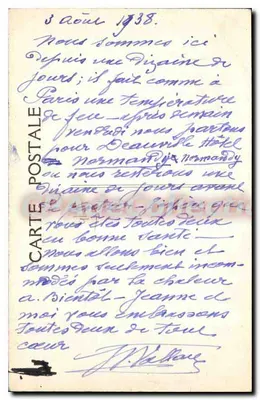 3 août 1938.
nous sommes ici
depuis une dizaine de
jours; il fait comme à
Paris une température
de feu - après demain
vendredi nous partons
pour Deauville Hôtel
Normandy Normandy
où nous resterons une
dizaine de jours avant
que
vous êtes toutes deux
en bonne santé -
nous allons bien et
sommes seulement incom-
modés par la chaleur
à Bientôt - Jeanne et
moi vous embrassons
toutes deux de tout
cœur
CARTE POSTALE